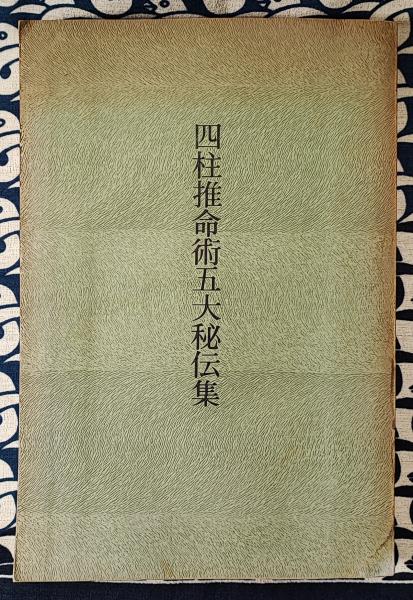 四柱推命術五大秘伝集